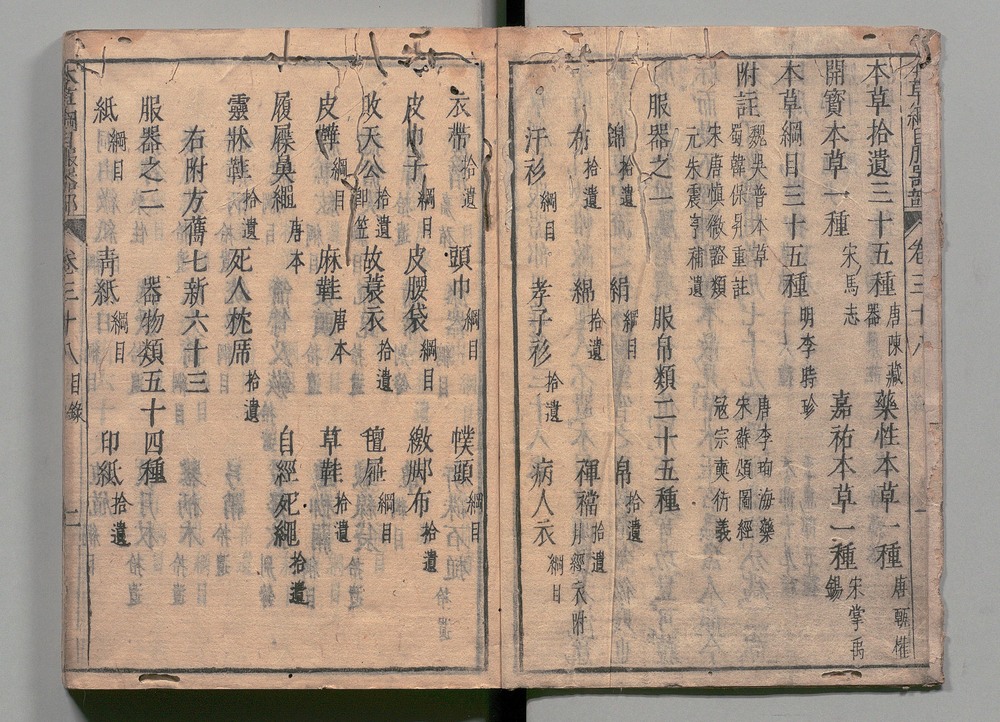 本草拾遺三十五種 唐陳藏器 藥性本草一種 唐甄權
開寶本草一種 宋馬志 嘉祐本草一種 宋掌禹錫
本草綱目三十五種 明李時珍
附註 魏吳普本草 唐李珣海藥
蜀韓保昇重註 宋蘇頌圖經
宋唐慎微證類 寇宗奭衍義
元朱震亨補遺
服器之一 服帛類二十五種
錦 拾遺 絹 綱目 帛 拾遺
布 拾遺 綿 拾遺 褌襠 拾遺 月經衣附
汗衫 綱目 孝子衫 拾遺 病人衣 綱目
衣帶 拾遺 頭巾 綱目 幞頭 綱目
皮巾子 綱目 皮腰袋 綱目 繳脚布 拾遺
敗天公 拾遺 即笠 故蓑衣 拾遺 氊屜 綱目
皮鞾 綱目 麻鞋 唐本 草鞋 拾遺
履屧鼻繩 唐本 自經死繩 拾遺
靈牀鞋 拾遺 死人枕席 拾遺
右附方舊七新六十三
服器之二 器物類五十四種
紙 綱目 青紙 綱目 印紙 拾遺
卷三十八 目錄 二